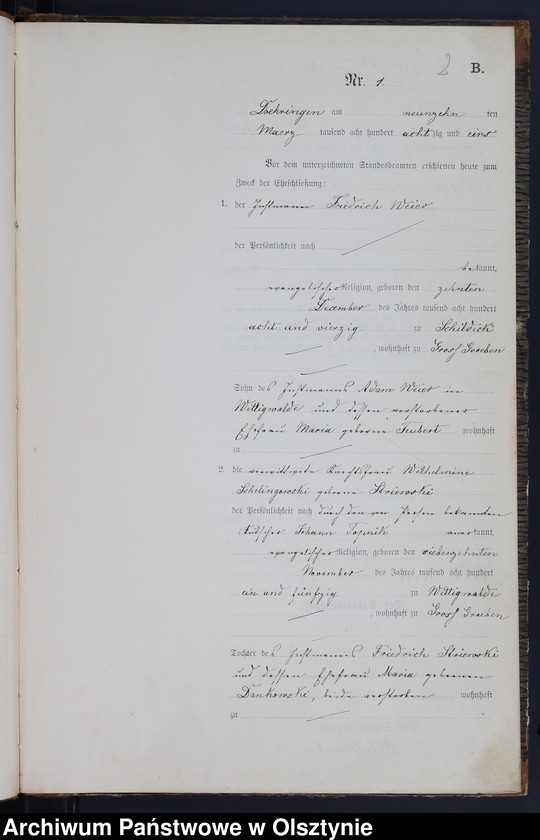 2
B.
Nr. 1.
Doehringen am neunzehn ten
Maerz tausend acht hundert acht zig und eins
Vor dem unterzeichneten Standesbeamten erschienen heute zum
Zweck der Eheschließung:
1. der Instmann Friedrich Weier
der Persönlichkeit nach
bekannt,
evangelischer Religion, geboren den zehnten
Dezember des Jahres tausend acht hundert
acht und vierzig zu Schildeck
, wohnhaft zu Gross Groeben
Sohn des Instmanns Adam Weier in
Wittigwalde und dessen verstorbener
Ehefrau Maria geborene Teubert wohnhaft
zu
2. die verwittwete Knechtsfrau Wilhelmine
Schelingowski geborne Striewski
der Persönlichkeit nach durch den von Person bekannten
Kutscher Johann Topnik anerkannt,
evangelischer Religion, geboren den siebenzehnten
November des Jahres tausend acht hundert
ein und fünfzig zu Wittigwalde
, wohnhaft zu Gross Groeben
Tochter des Instmanns Friedrich Striewski
und dessen Ehefrau Maria gebornen
Dankowski, beide verstorben wohnhaft
zu
Archiwum Państwowe w Olsztynie